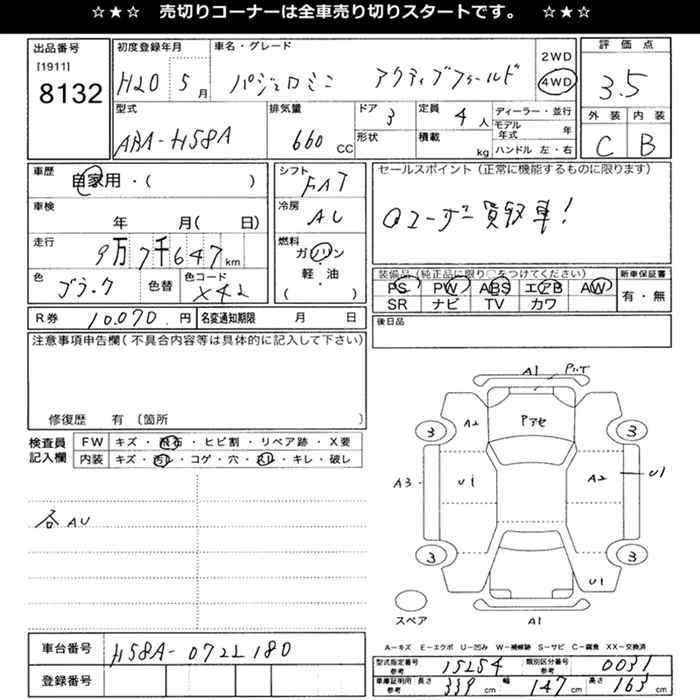 ☆★☆ 売切りコーナーは全車売り切りスタートです。 ☆★☆
出品番号 初度登録年月 車名・グレード 2WD 評価点
[1911] 8132 H20 5月 パジェロミニ アクティブフィールド 4WD 3.5
型式 排気量 ドア 定員 ディーラー・並行 外装 内装
ABA-H58A 660 CC 3 4人 モデル年式 年 C B
形状 積載 kg ハンドル 左・右
車歴 自家用・( ) シフト FAT セールスポイント(正常に機能するものに限ります)
車検 年 月( 日) 冷房 AC ユーザー買取車!
走行 9万7千647km 燃料 ガソリン・軽・油 ( )
色 ブラック 色替 色コード X42
装備品(純正品に限り○をつけてください) 新車保証書
PS PW ABS エアB AW 有・無
SR ナビ TV カワ
R券 10,070円 名変通知期限 月 日 後日品
注意事項申告欄(不具合内容等は具体的に記入して下さい)
修復歴 有 [箇所 ]
検査員記入欄 FW キズ・飛石・ヒビ割・リペア跡・X要
内装 キズ・汚レ・コゲ・穴・スレ・キレ・破レ
各AU
A1
3 A2 3
A3 U1 A2 U1
3 U1 3
スペア A1
A-キズ E-エクボ U-凹み W-補修跡 S-サビ C-腐食 XX-交換済
車台番号 H58A-0722180
登録番号
型式指定番号 参考 15254 類別区分番号 参考 0031
車庫証明用 参考 長さ 339cm 幅 147cm 高さ 163cm